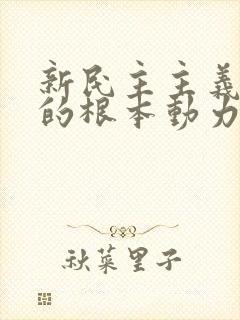 新民主主義
的根本動力
秋菜里子